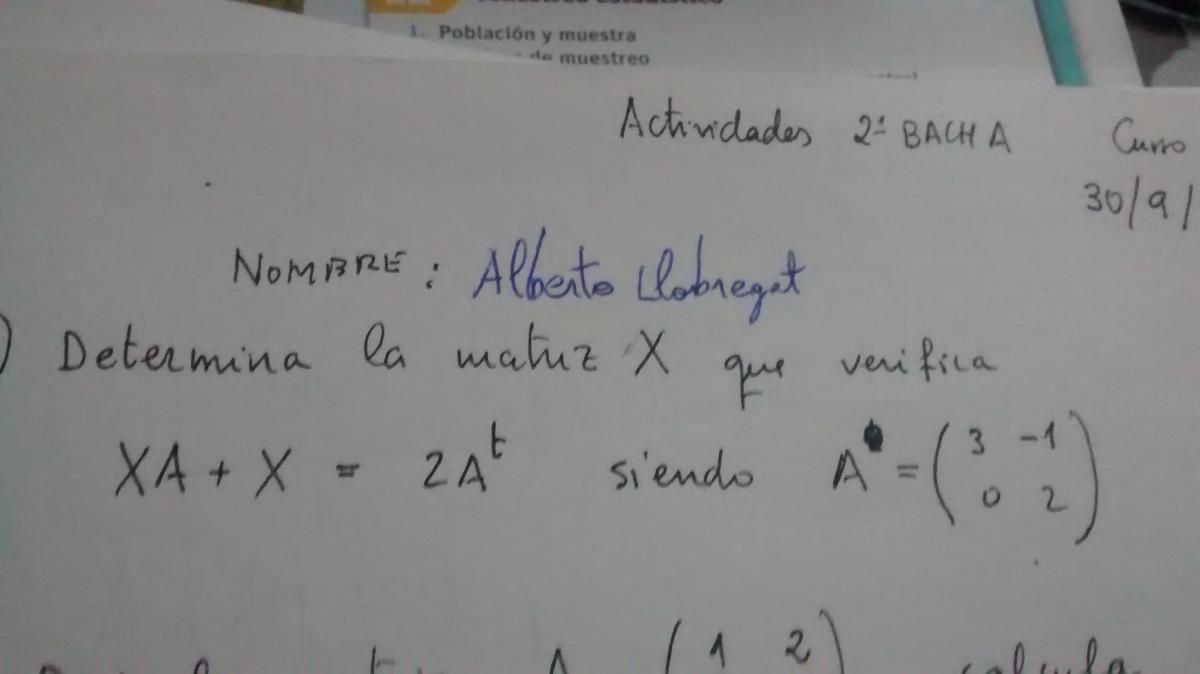 1. Población y muestra
de muestreo
Actividades 2ª BACH A Curso
30/9/
NOMBRE: Alberto Llobregat
) Determina la matriz X que verifica
XA + X = 2Aᵗ siendo A = ( 3 -1
0 2 )
( 1 2 )
calcula